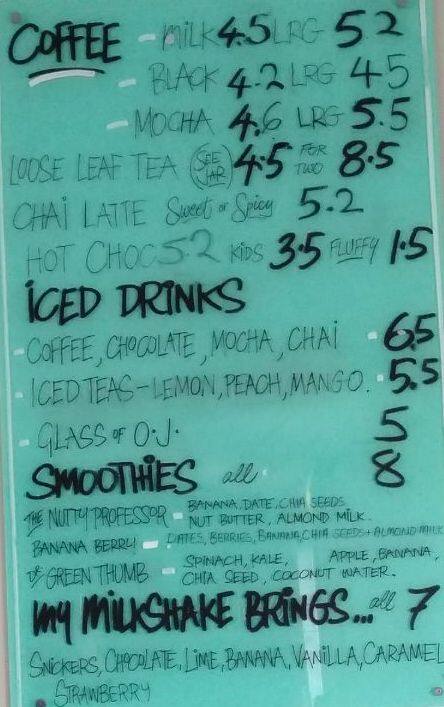 COFFEE - MILK 4.5 LRG 5.2
- BLACK 4.2 LRG 4.5
- MOCHA 4.6 LRG 5.5
LOOSE LEAF TEA (SEE JAR) 4.5 FOR TWO 8.5
CHAI LATTE Sweet or Spicy 5.2
HOT CHOC 5.2 KIDS 3.5 FLUFFY 1.5
ICED DRINKS
- COFFEE, CHOCOLATE, MOCHA, CHAI - 6.5
- ICED TEAS - LEMON, PEACH, MANGO. - 5.5
- GLASS OF O.J. 5
SMOOTHIES all 8
THE NUTTY PROFESSOR - BANANA, DATE, CHIA SEEDS
NUT BUTTER, ALMOND MILK.
BANANA BERRY - DATES, BERRIES, BANANA, CHIA SEEDS + ALMOND MILK
GREEN THUMB - SPINACH, KALE, APPLE, BANANA,
CHIA SEED, COCONUT WATER.
MY MILKSHAKE BRINGS... all 7
SNICKERS, CHOCOLATE, LIME, BANANA, VANILLA, CARAMEL
STRAWBERRY